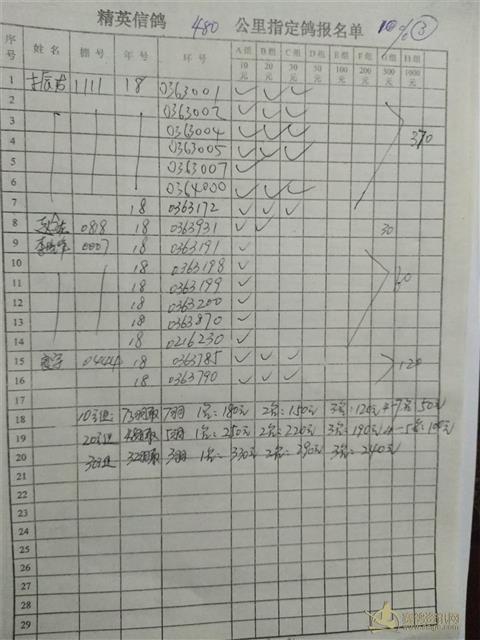 精英信鸽 480 公里指定鸽报名单
序号 姓名 棚号 年号 环号 A组 B组 C组 D组 E组 F组 G组 H组
10元 20元 30元 50元 100元 200元 500元 1000元
1 1111 18 0363001 ✓ ✓ ✓
2 0363002 ✓ ✓ ✓
3 0363004 ✓ ✓ ✓ 370
4 0363005 ✓ ✓ ✓
5 0363007 ✓ ✓
6 0364000 ✓ ✓ ✓
7 18 0363172 ✓ ✓ ✓
8 088 18 0363931 ✓ ✓ 30
9 0007 18 0363191 ✓
10 18 0363198 ✓
11 18 0363199 ✓ 60
12 18 0363200 ✓
13 18 0363870 ✓
14 18 0216230 ✓
15 0444 18 0363785 ✓ ✓ ✓ 120
16 18 0363790 ✓ ✓ ✓
17
18 10元组: 73羽取7羽 1名:180元 2名:150元 3名:120元 4-7名:50元
19 20元组 48羽取5羽 1名:250元 2名:220元 3名:190元 4-5名:100元
20 30元组 32羽取3羽 1名:330元 2名:290元 3名:240元
21
22
23
24
25
26
27
28
29